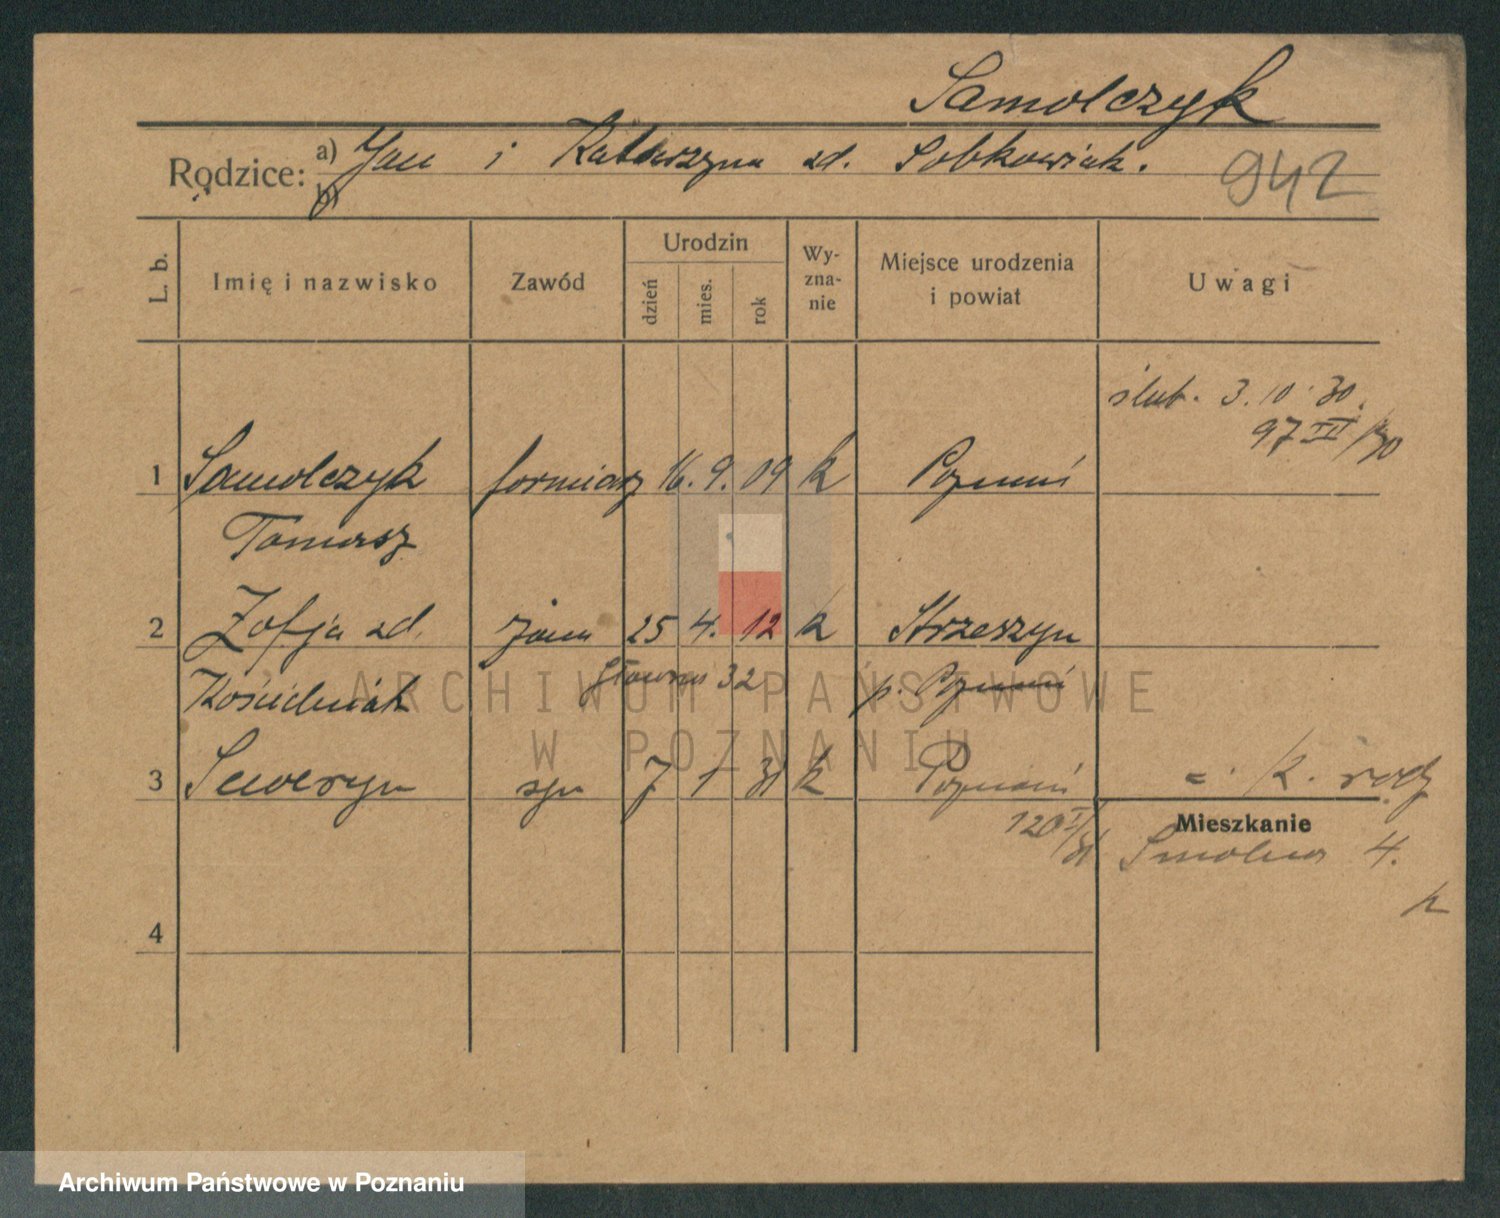 Samolczyk
Rodzice: a) Jan i Katarzyna zd. Sobkowiak.
b)
942
L. b.
Imię i nazwisko
Zawód
Urodzin
dzień
mies.
rok
Wy-
zna-
nie
Miejsce urodzenia
i powiat
Uwagi
ślub. 3.10.30.
97 III/30
1 Samolczyk formiarz 16. 9. 09 k Poznań
Tomasz
2 Zofja zd. żona 25 4. 12 k Strzeszyn
32
p. Poznań
3 Seweryn syn 7 1 31 k Poznań
120 I/31
k. rodz
Mieszkanie
Smolna 4.
k
4
ARCHIWUM PAŃSTWOWE
W POZNANIU
Archiwum Państwowe w Poznaniu